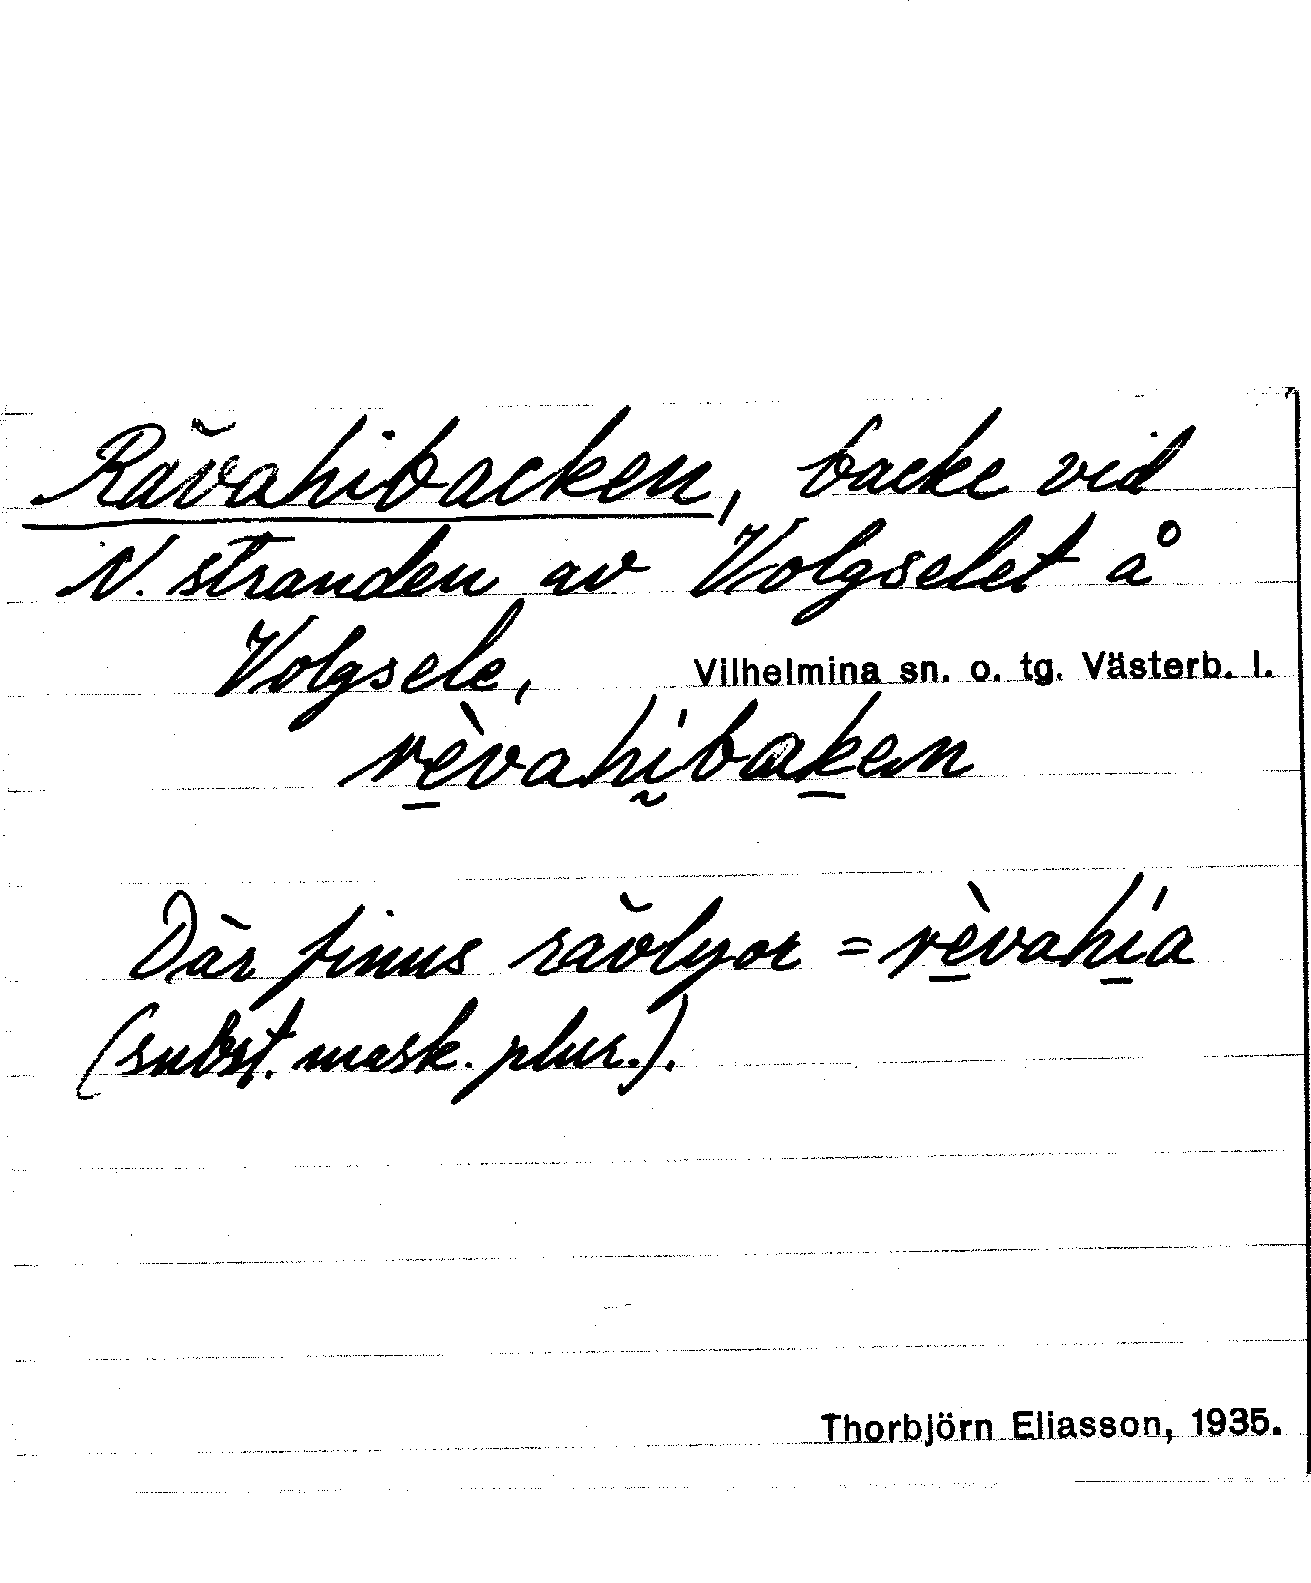 Rävahibacken, backe vid
N. stranden av Volgselet å
Volgsele, Vilhelmina sn. o. tg. Västerb. l.
rèvahí̬baken
Där finns rävlyor = rèvahía
(subst. mask. plur.).
Thorbjörn Eliasson, 1935.